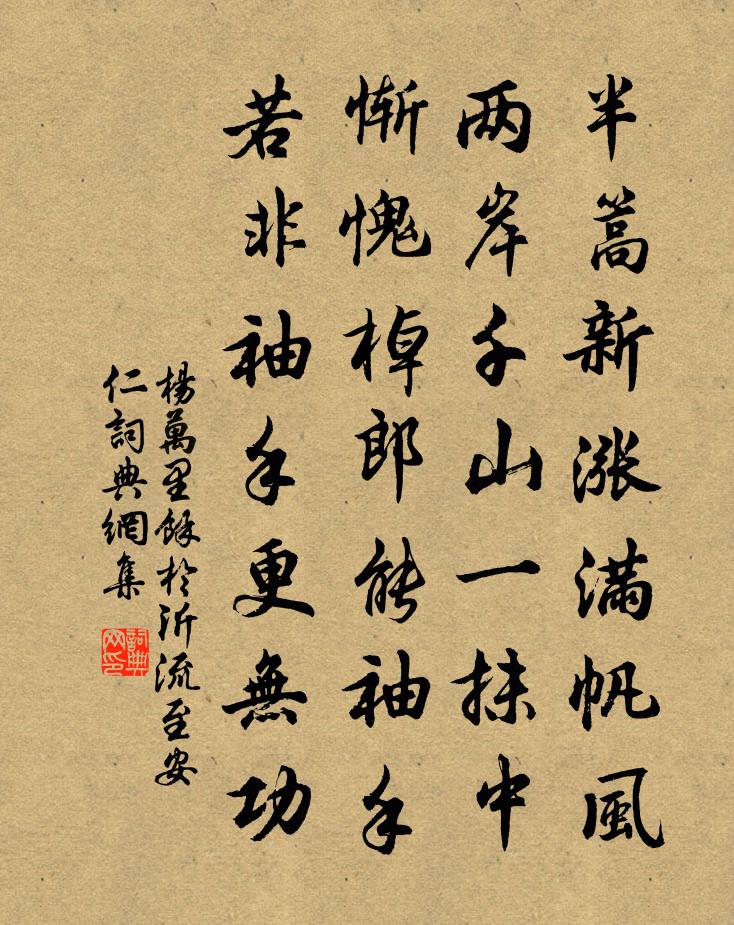 半篙新涨满帆風
两岸千山一抹中
慚愧棹郎能袖手
若非袖手更無功
楊萬里餘於泝流至安
仁詞典網集
詞典网印